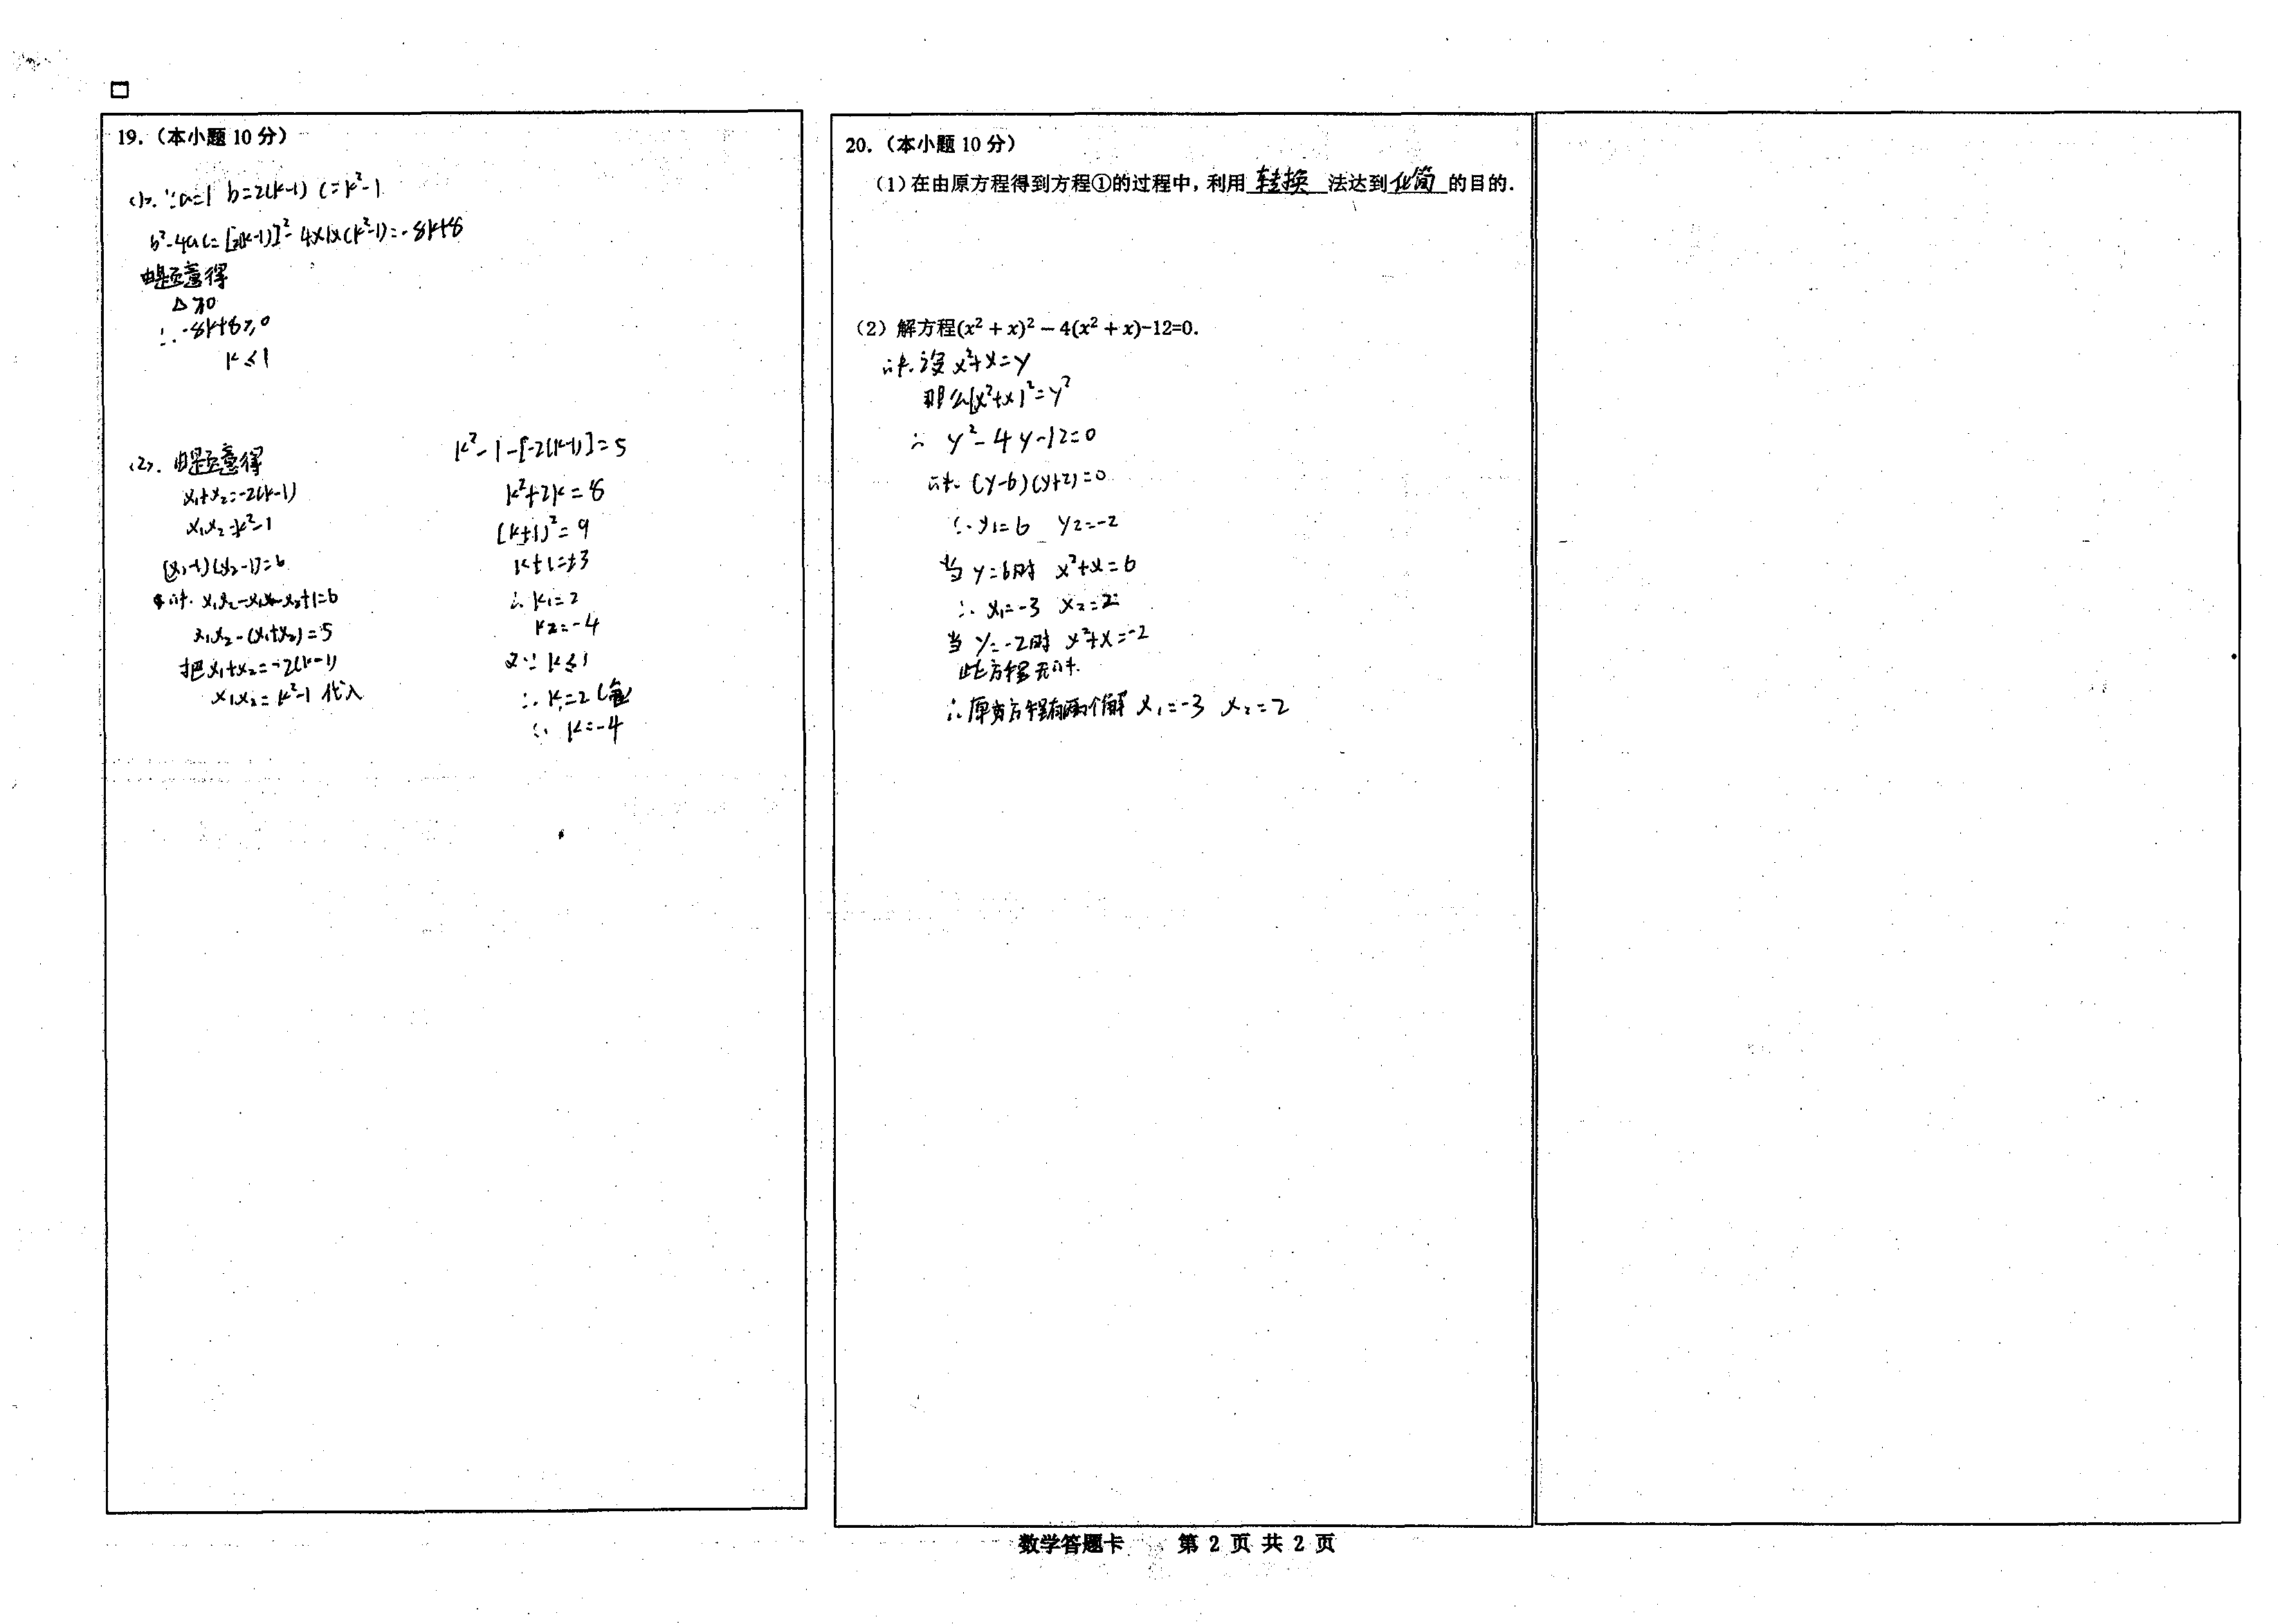 19.（本小题 10 分）
(1). ∵a=1 b=2(k-1) c=k²-1
b²-4ac=[2(k-1)]²-4×1×(k²-1)=-8k+8
由题意得
△≥0
∴ -8k+8≥0
k≤1
(2). 由题意得
x₁+x₂=-2(k-1)
x₁x₂=k²-1
(x₁-1)(x₂-1)=6
解. x₁x₂-x₁-x₂+1=6
x₁x₂-(x₁+x₂)=5
把x₁+x₂=-2(k-1)
x₁x₂=k²-1 代入
k²-1-[-2(k-1)]=5
k²+2k=8
(k+1)²=9
k+1=±3
∴ k₁=2
k₂=-4
又∵ k≤1
∴ k=2 (舍)
∴ k=-4
20.（本小题 10 分）
（1）在由原方程得到方程①的过程中，利用 转换 法达到 化简 的目的.
（2）解方程(x² + x)² − 4(x² + x)-12=0.
解. 设 x²+x=y
那么(x²+x)²=y²
∴ y²-4y-12=0
解. (y-6)(y+2)=0
∴ y₁=6 y₂=-2
当 y=6时 x²+x=6
∴ x₁=-3 x₂=2
当 y=-2时 x²+x=-2
此方程无解.
∴原方程有两个解 x₁=-3 x₂=2
数学答题卡 第 2 页 共 2 页